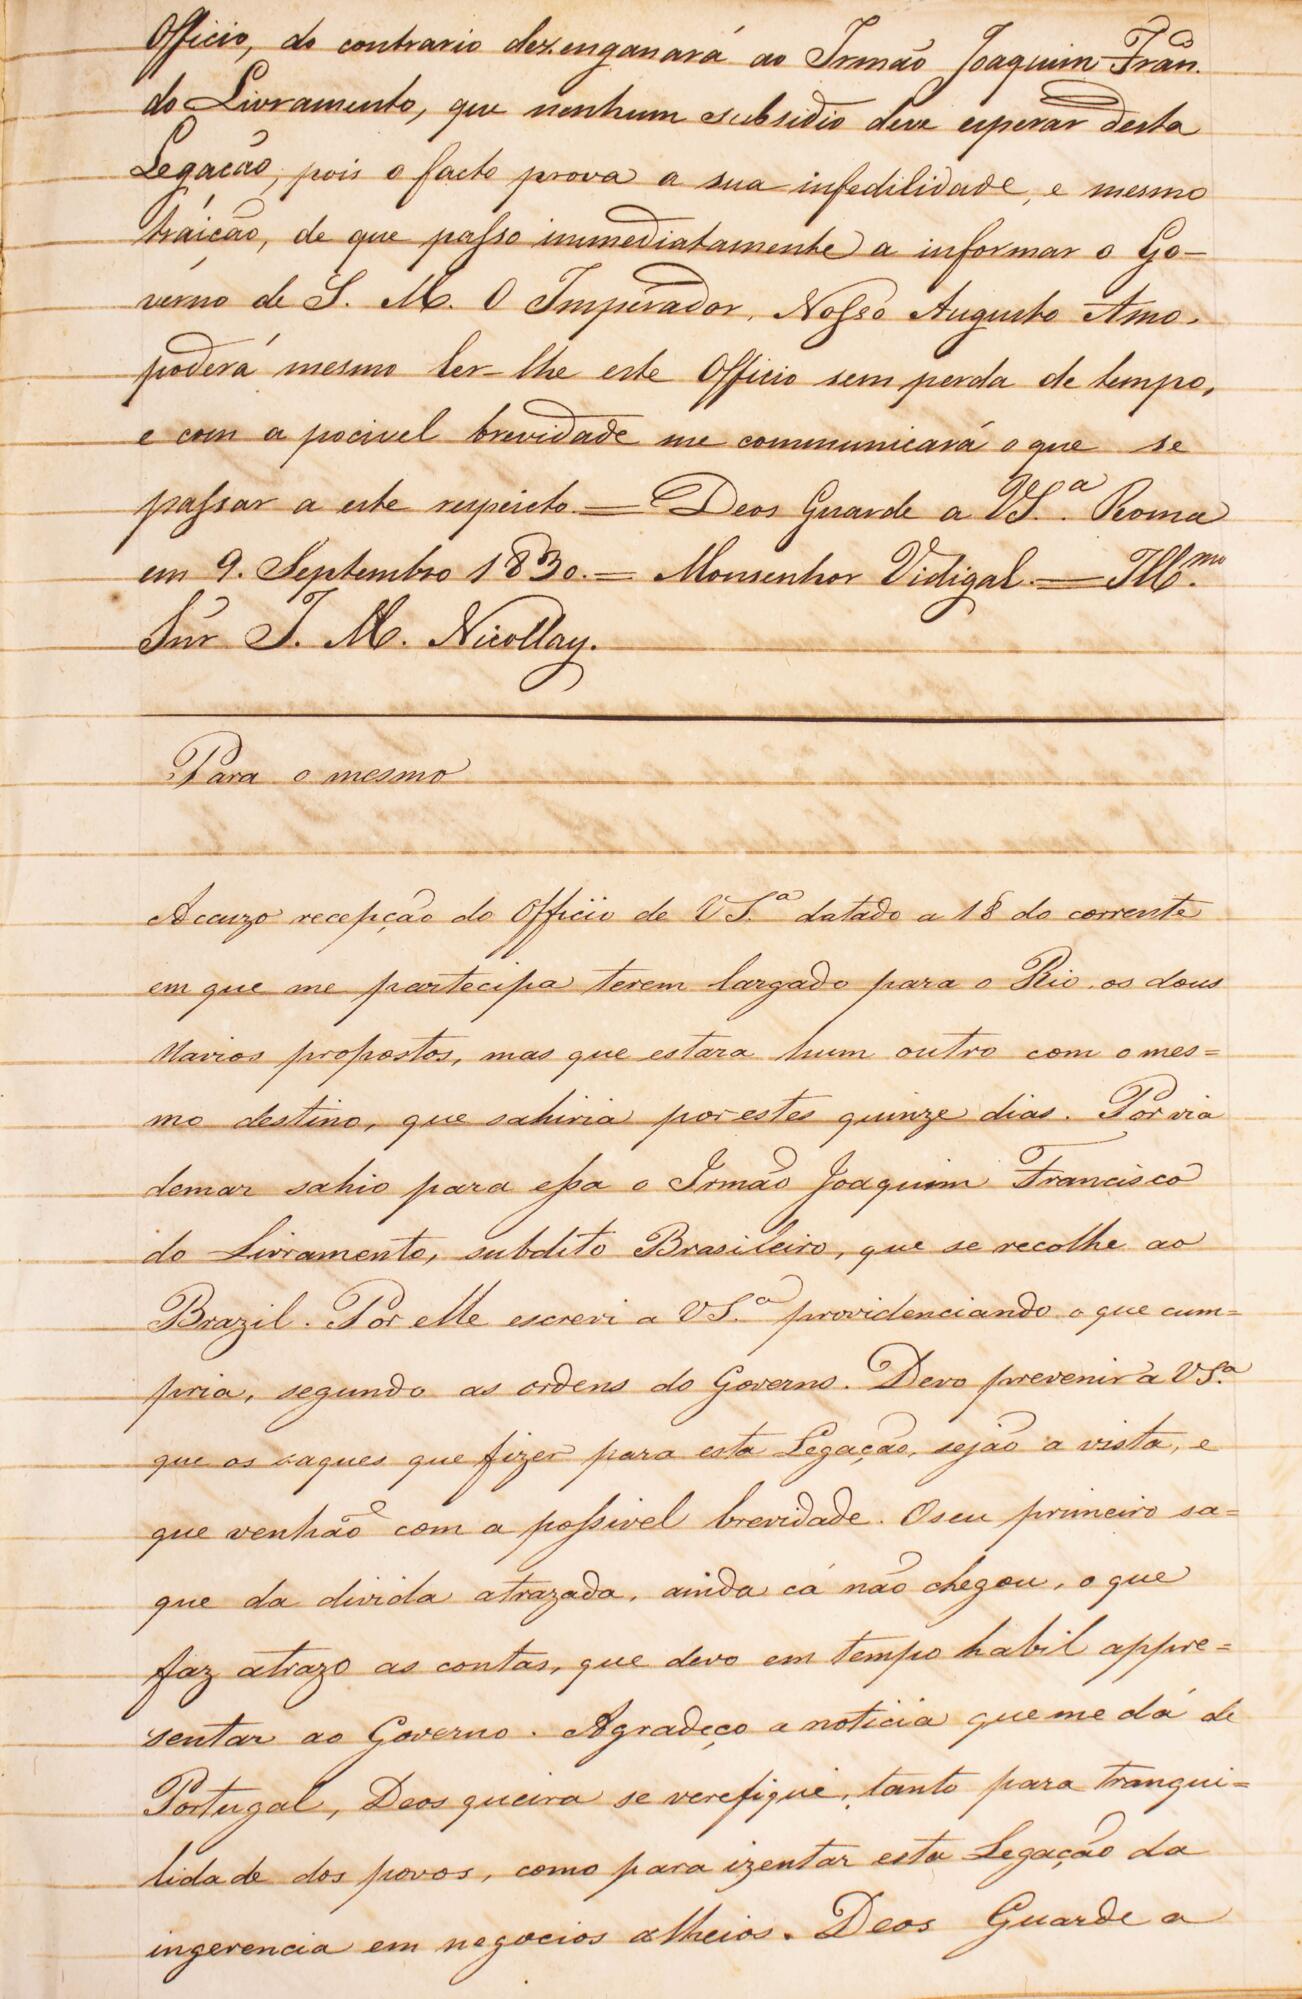 Officio, do contrario dezenganará ao Irmão Joaquim Fran.
do Livramento, que nenhum subsidio deve esperar desta
Legacão, pois o facto prova a sua infedilidade, e mesmo
traicão, de que passo immediatamente a informar o Go-
verno de S. M. O Imperador, Nosso Augusto Amo.
poderá mesmo ler-lhe este Officio sem perda de tempo,
e com a pocivel brevidade me communicará o que se
passar a este respeito. = Deos Guarde a VS.ª Roma
em 9. Septembro 1830. = Monsenhor Vidigal. = Ill.mo
Snr J. M. Nicollay.
Para o mesmo
Accuzo recepção do Officio de VS.ª datado a 18 do corrente
em que me partecipa terem largado para o Rio os dous
Navios propostos, mas que estara hum outro com o mes=
mo destino, que sahiria por estes quinze dias. Por via
demar sahio para essa o Irmão Joaquim Francisco
do Livramento, subdito Brasileiro, que se recolhe ao
Brazil. Por elle escrevi a VS.ª providenciando o que cum=
pria, segundo as ordens do Governo. Devo prevenir a VS.ª
que os saques que fizer para esta Legação, sejão a vista, e
que venhão com a possivel brevidade. O seu primeiro sa=
que da divida atrazada, ainda cá não chegou, o que
faz atrazo as contas, que devo em tempo habil appre=
sentar ao Governo. Agradeço a noticia que me dá de
Portugal, Deos queira se verefique, tanto para tranqui=
lidade dos povos, como para izentar esta Legação da
ingerencia em negocios alheios. Deos Guarde a